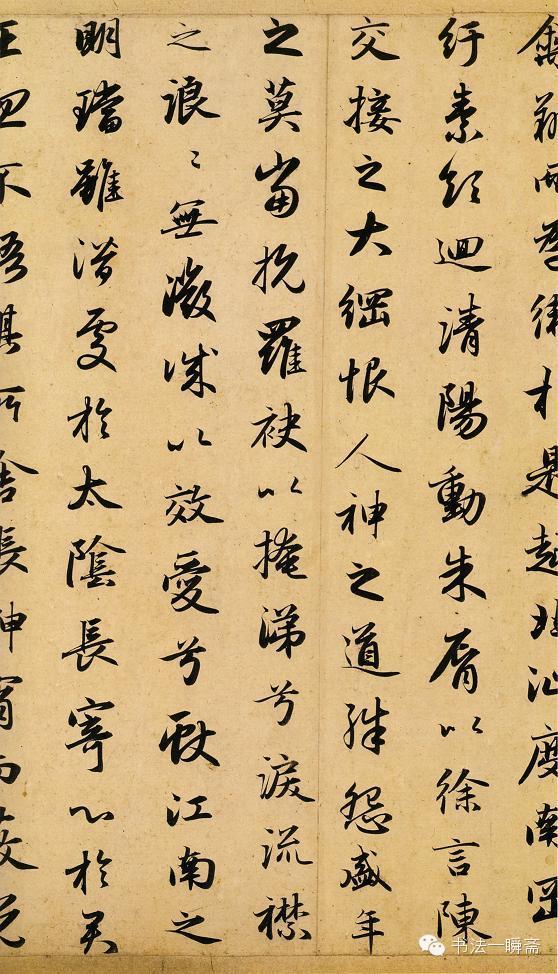 翔而為衛於是越北沚度南岡
紆素領迴清陽動朱脣以徐言陳
交接之大綱恨人神之道殊怨盛年
之莫當抗羅袂以掩涕兮淚流襟
之浪〻無微誠以效愛兮獻江南之
明璫雖潛處於太陰長寄心於君
王忽不悟其所舍悵神宵而蔽光
书法一瞬斋